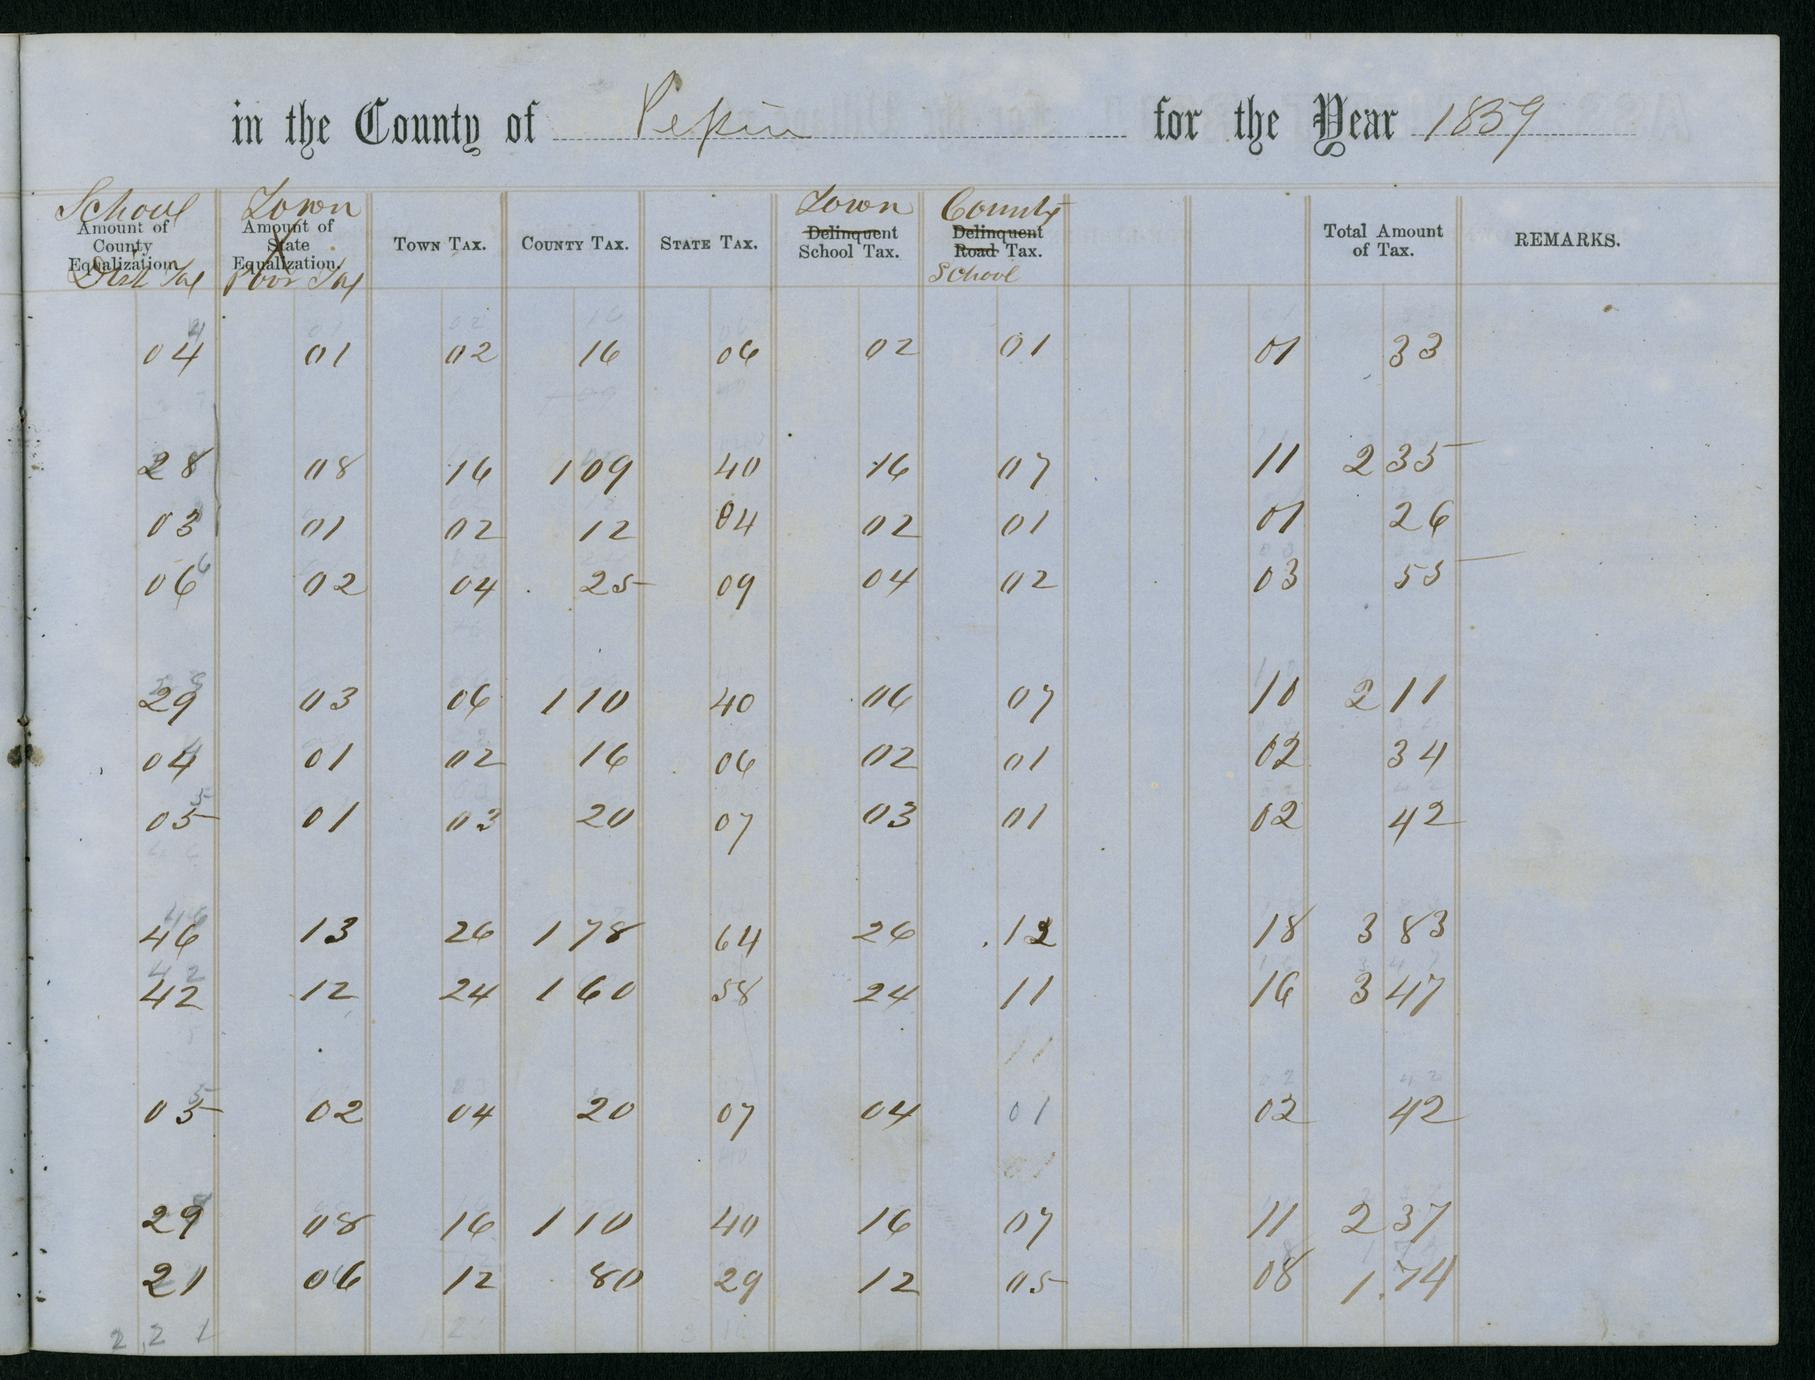 in the County of Pepin for the Year 1859
School Town Town County
Amount of County Equalization Amount of State Equalization TOWN TAX. COUNTY TAX. STATE TAX. Delinquent School Tax. Delinquent Road Tax. Total Amount of Tax. REMARKS.
Dist Tax Poor Tax School
04 01 02 16 06 02 01 01 33
28 08 16 1 09 40 16 07 11 2 35
03 01 02 12 04 02 01 01 26
06 02 04 25 09 04 02 03 55
29 03 06 1 10 40 06 07 10 2 11
04 01 02 16 06 02 01 02 34
05 01 03 20 07 03 01 02 42
46 13 26 1 78 64 26 12 18 3 83
42 12 24 1 60 58 24 11 16 3 47
05 02 04 20 07 04 01 02 42
29 08 16 1 10 40 16 07 11 2 37
21 06 12 80 29 12 05 08 1.74
2 2 1